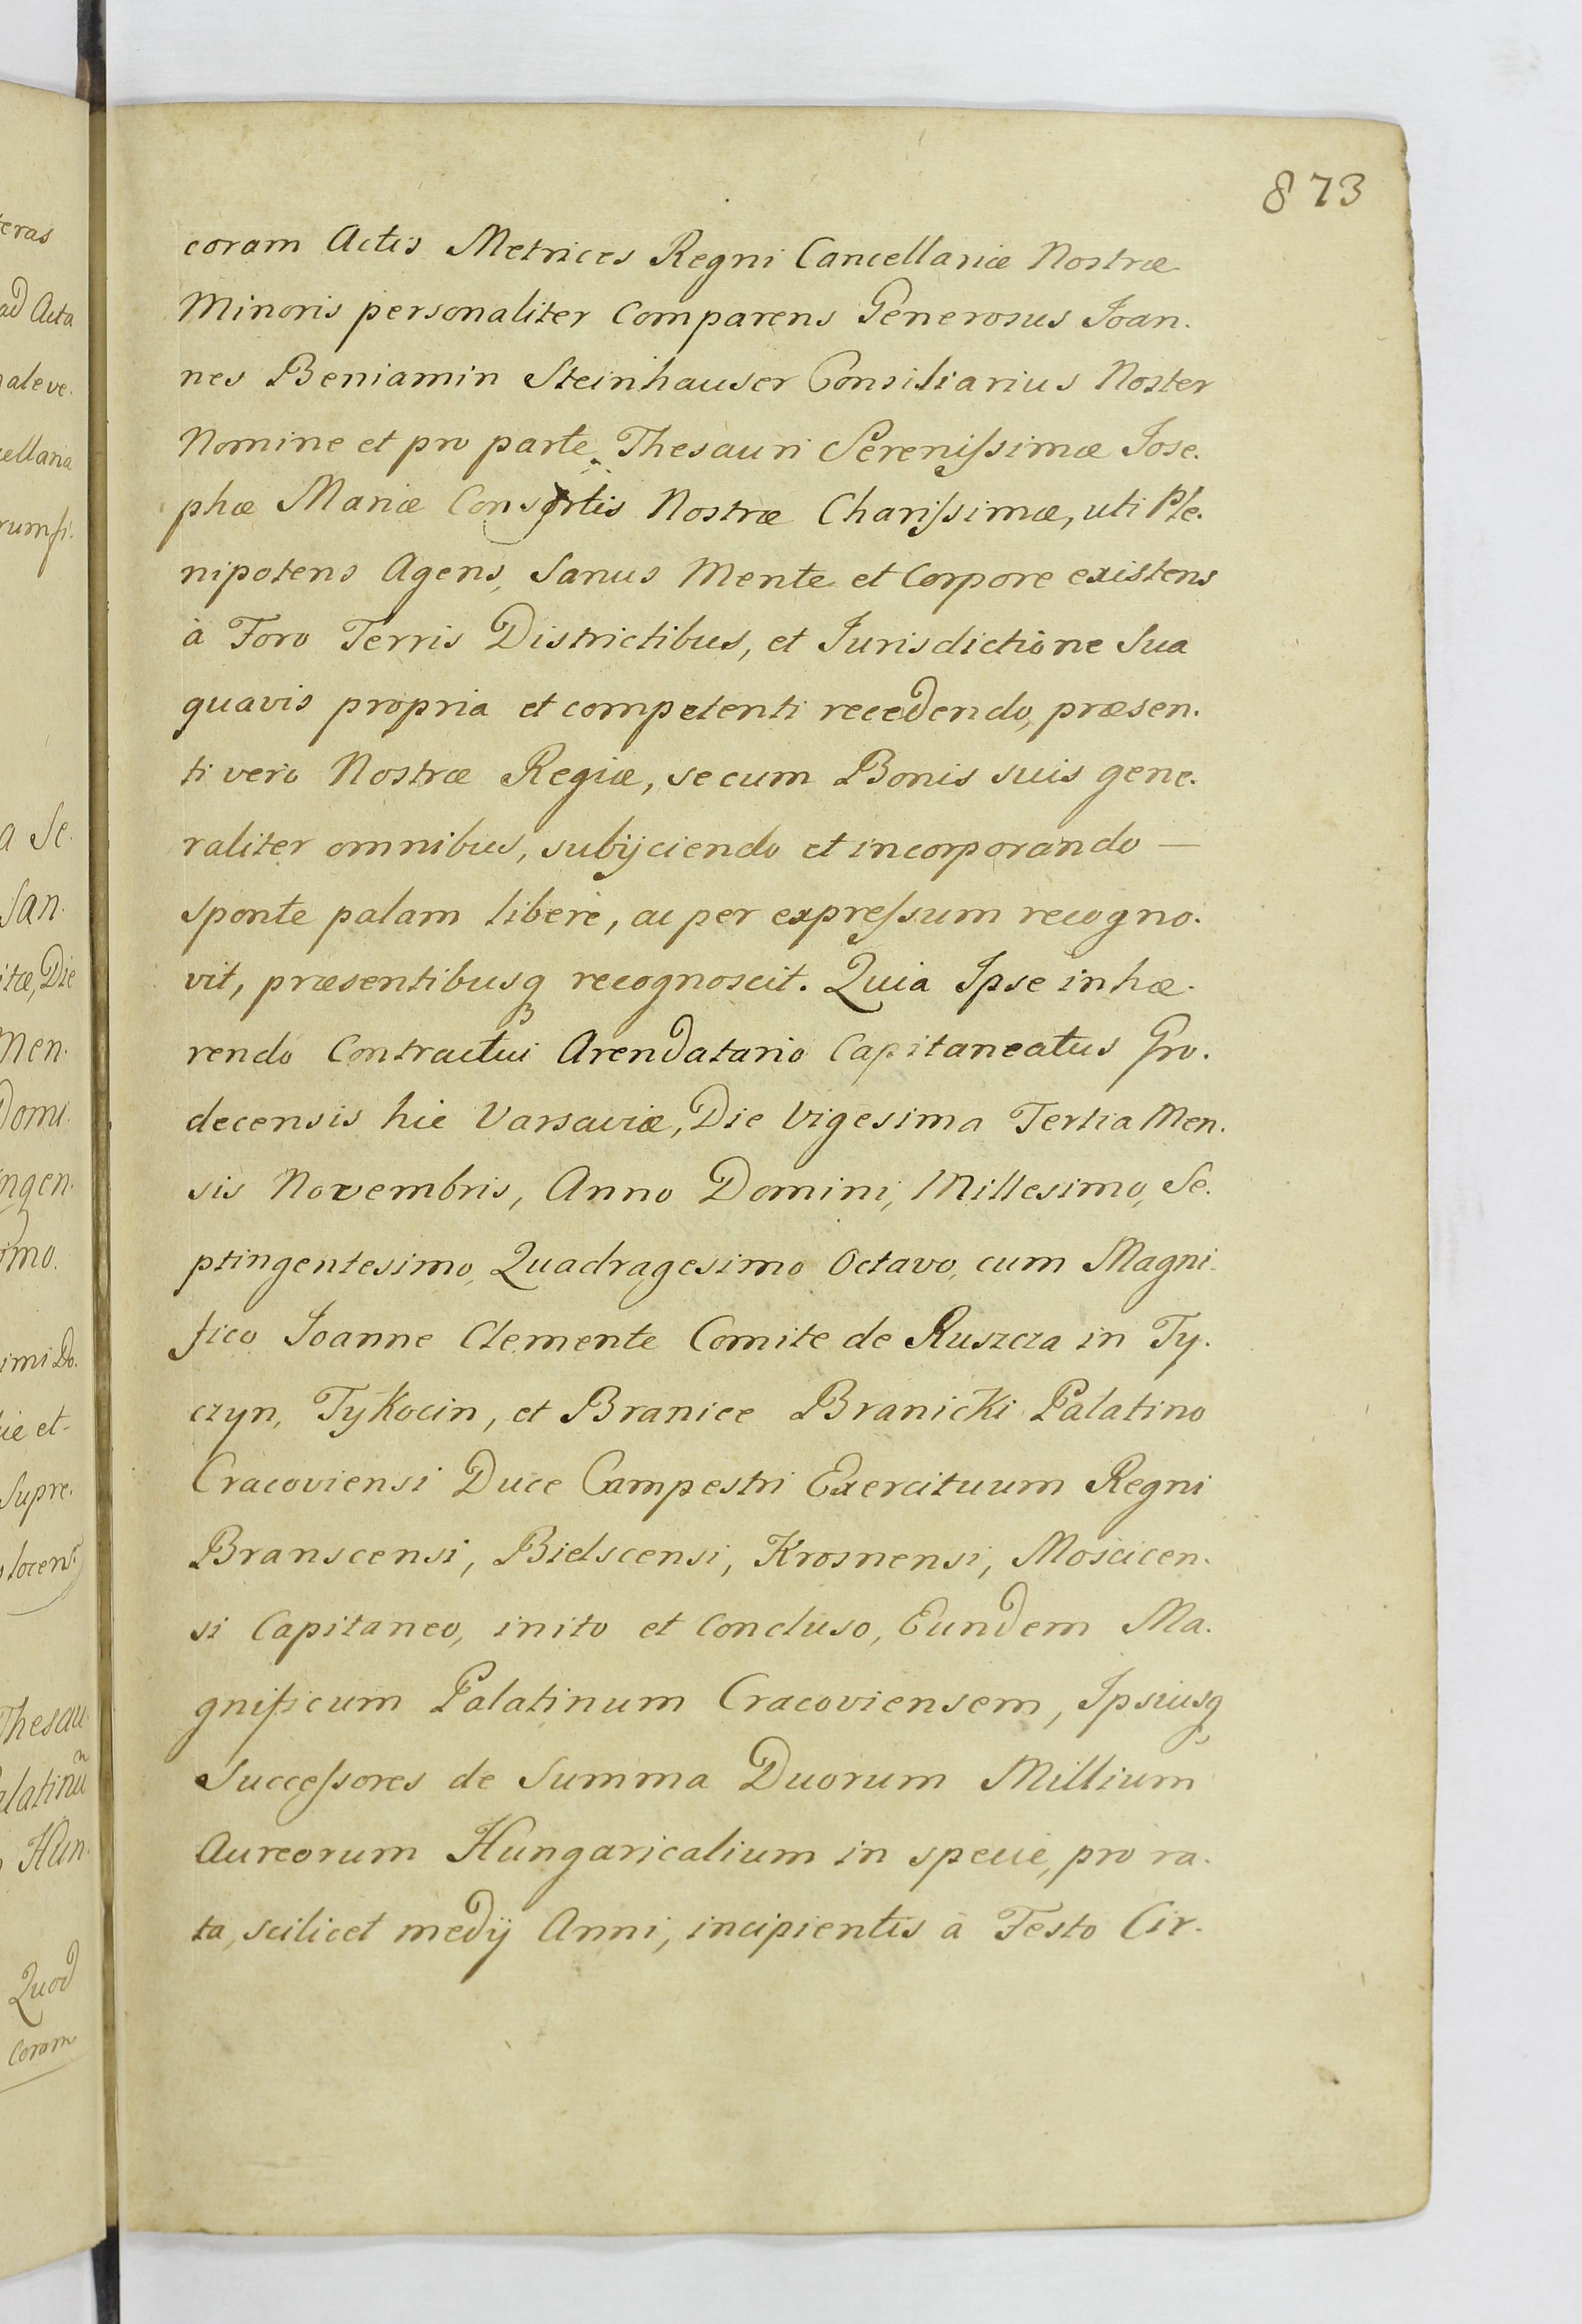 873
coram Actis Metrices Regni Cancellariæ Nostræ
Minoris personaliter Comparens Generosus Joan.
nes Beniamin Steinhauser Consiliarius Noster
Nomine et pro parte Thesauri Serenissimæ Jose.
phæ Mariæ Consortis Nostræ Charissimæ, uti Ple.
nipotens Agens, Sanus Mente et Corpore existens
à Foro Terris Districtibus, et Jurisdictione Sua
quavis propria et competenti recedendo, præsen.
ti vero Nostræ Regiæ, se cum Bonis suis gene.
raliter omnibus, subijciendo et incorporando —
sponte palam libere, ac per expressum recogno.
vit, præsentibusq recognoscit. Quia Ipse inhæ.
rendo Contractui Arendatario Capitaneatus Gro.
decensis hic Varsaviæ, Die Vigesima Tertia Men.
sis Novembris, Anno Domini, Millesimo, Se.
ptingentesimo, Quadragesimo Octavo, cum Magni.
fico Joanne Clemente Comite de Ruszcza in Ty.
czyn, Tykocin, et Branice Branicki Palatino
Cracoviensi Duce Campestri Exercituum Regni
Branscensi, Bielscensi, Krosnensi, Moscicen.
si Capitaneo, inito et Concluso, Eundem Ma.
gnificum Palatinum Cracoviensem, Ipsiusq
Successores de Summa Duorum Millium
Aureorum Hungaricalium in specie, pro ra.
ta, scilicet medij Anni, incipientis à Festo Cir.
teras
ad Acta
ellaria
a Se.
San.
itæ, Die
Men.
Domi.
ngen.
imo.
imi Do.
ie et
Supre.
Thesau.
alatinu
Hun.
Quod
Coram